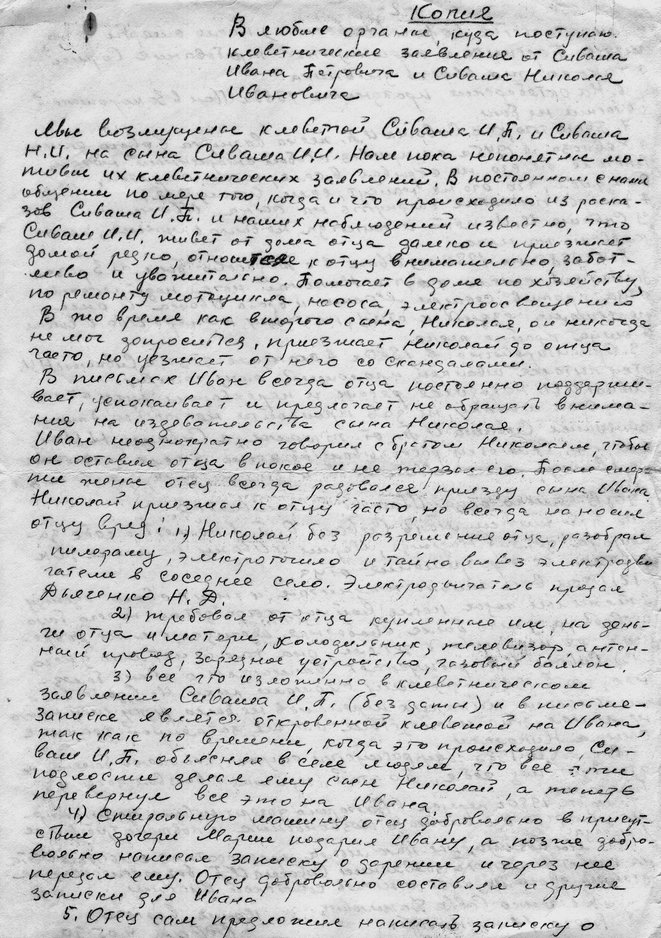 Копия
В любые органы, куда поступают
клеветнические заявления от Сиваша
Ивана Петровича и Сиваша Николая
Ивановича
Мы возмущены клеветой Сиваша И.П. и Сиваша
Н.И. на сына Сиваша И.И. Нам пока непонятны мо-
тивы их клеветнических заявлений. В постоянном с нами
общении по мере того, когда и что происходило из расска-
зов Сиваша И.П. и наших наблюдений известно, что
Сиваш И.И. живет от дома отца далеко и приезжает
домой редко, относится к отцу внимательно, забот-
ливо и уважительно. Помогает в доме по хозяйству,
по ремонту мотоцикла, насоса, электроосвещения
В то время как второго сына, Николая, он никогда
не мог допроситься, приезжает Николай до отца
часто, но уезжает от него со скандалами.
В письмах Иван всегда отца постоянно поддержи-
вает, успокаивает и предлагает не обращать внима-
ния на издевательства сына Николая.
Иван неоднократно говорил с братом Николаем, чтобы
он оставил отца в покое и не терзал его. После смер-
ти жены отец всегда радовался приезду сына Ивана
Николай приезжал к отцу часто, но всегда наносил
отцу вред: 1) Николай без разрешения отца, разобрал
пилораму, электроточило и тайно вывез электродви
гатели в соседнее село. Электродвигатель продал
Дьяченко Н.Д.
2) требовал от отца купленные им, на день-
ги отца и матери, холодильник, телевизор, антен-
ный провод, зарядное устройство, газовый баллон.
3) все что изложено в клеветническом
заявлении Сиваша И.П. (без даты) и в письме-
записке является откровенной клеветой на Ивана,
так как по времени, когда это происходило, Си-
ваш И.П. объяснял в селе людям, что все эти
подлости делал ему сын Николай, а теперь
перевернул все это на Ивана.
4) Стиральную машину отец добровольно в присут-
ствии дочери Марии подарил Ивану, а позже добро-
вольно написал записку о дарении и через нее
передал ему. Отец добровольно составлял и другие
записки для Ивана
5. Отец сам предложил написать записку о